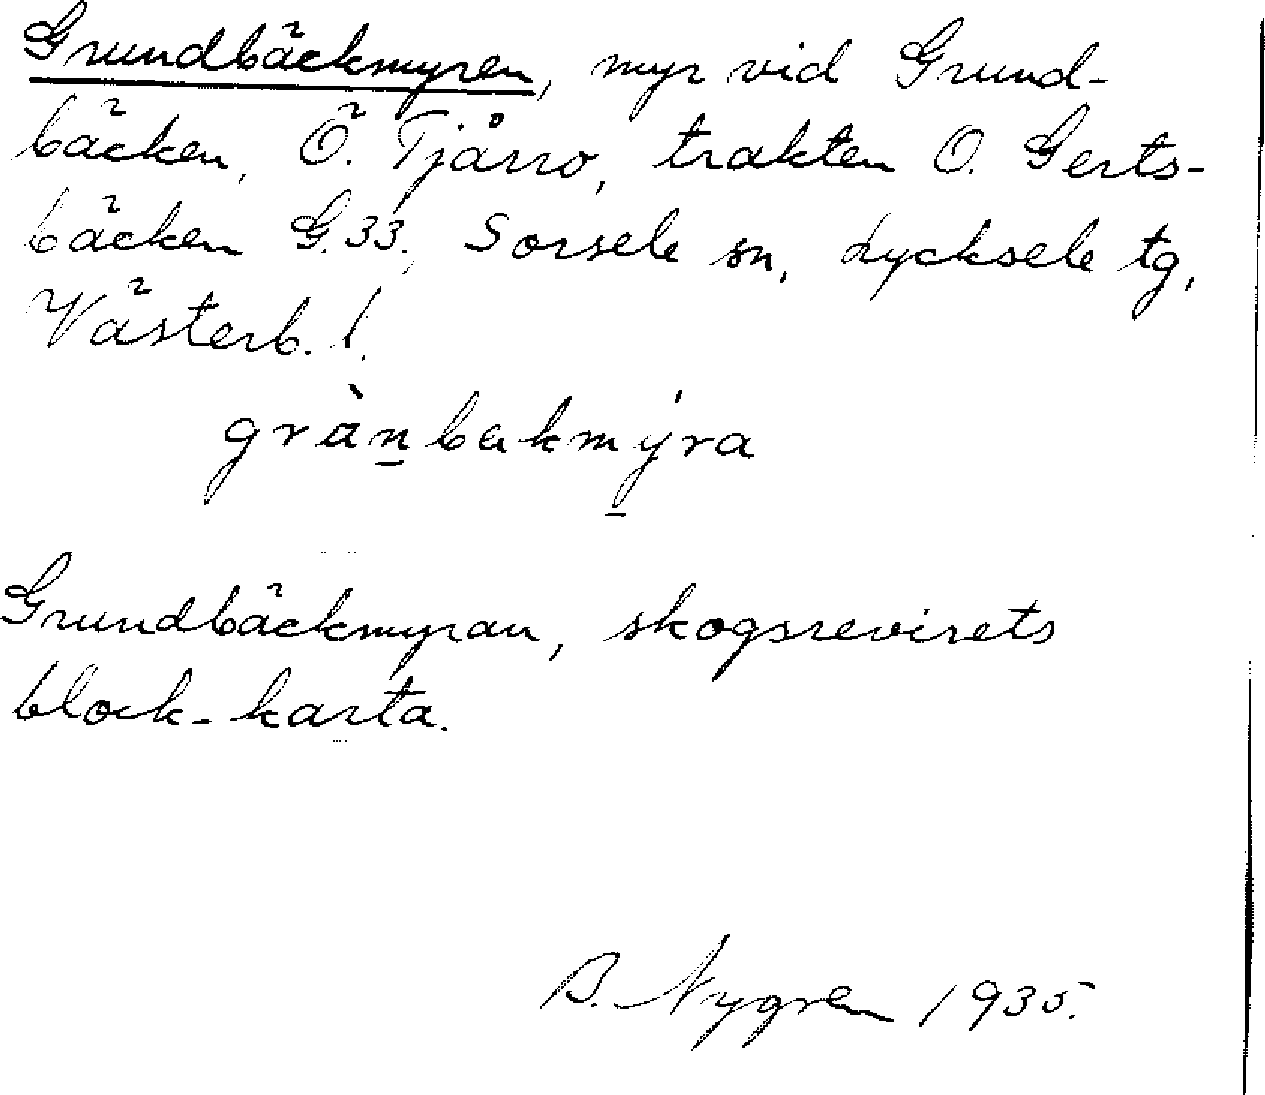 Grundbäckmyren, myr vid Grund-
bäcken, Ö. Tjårro, trakten O. Gerts-
bäcken G.33., Sorsele sn, Lycksele tg,
Västerb. l.
gràn̲bækmýra
Grundbäckmyran, skogsrevirets
block-karta.
B. Nygren 1935.